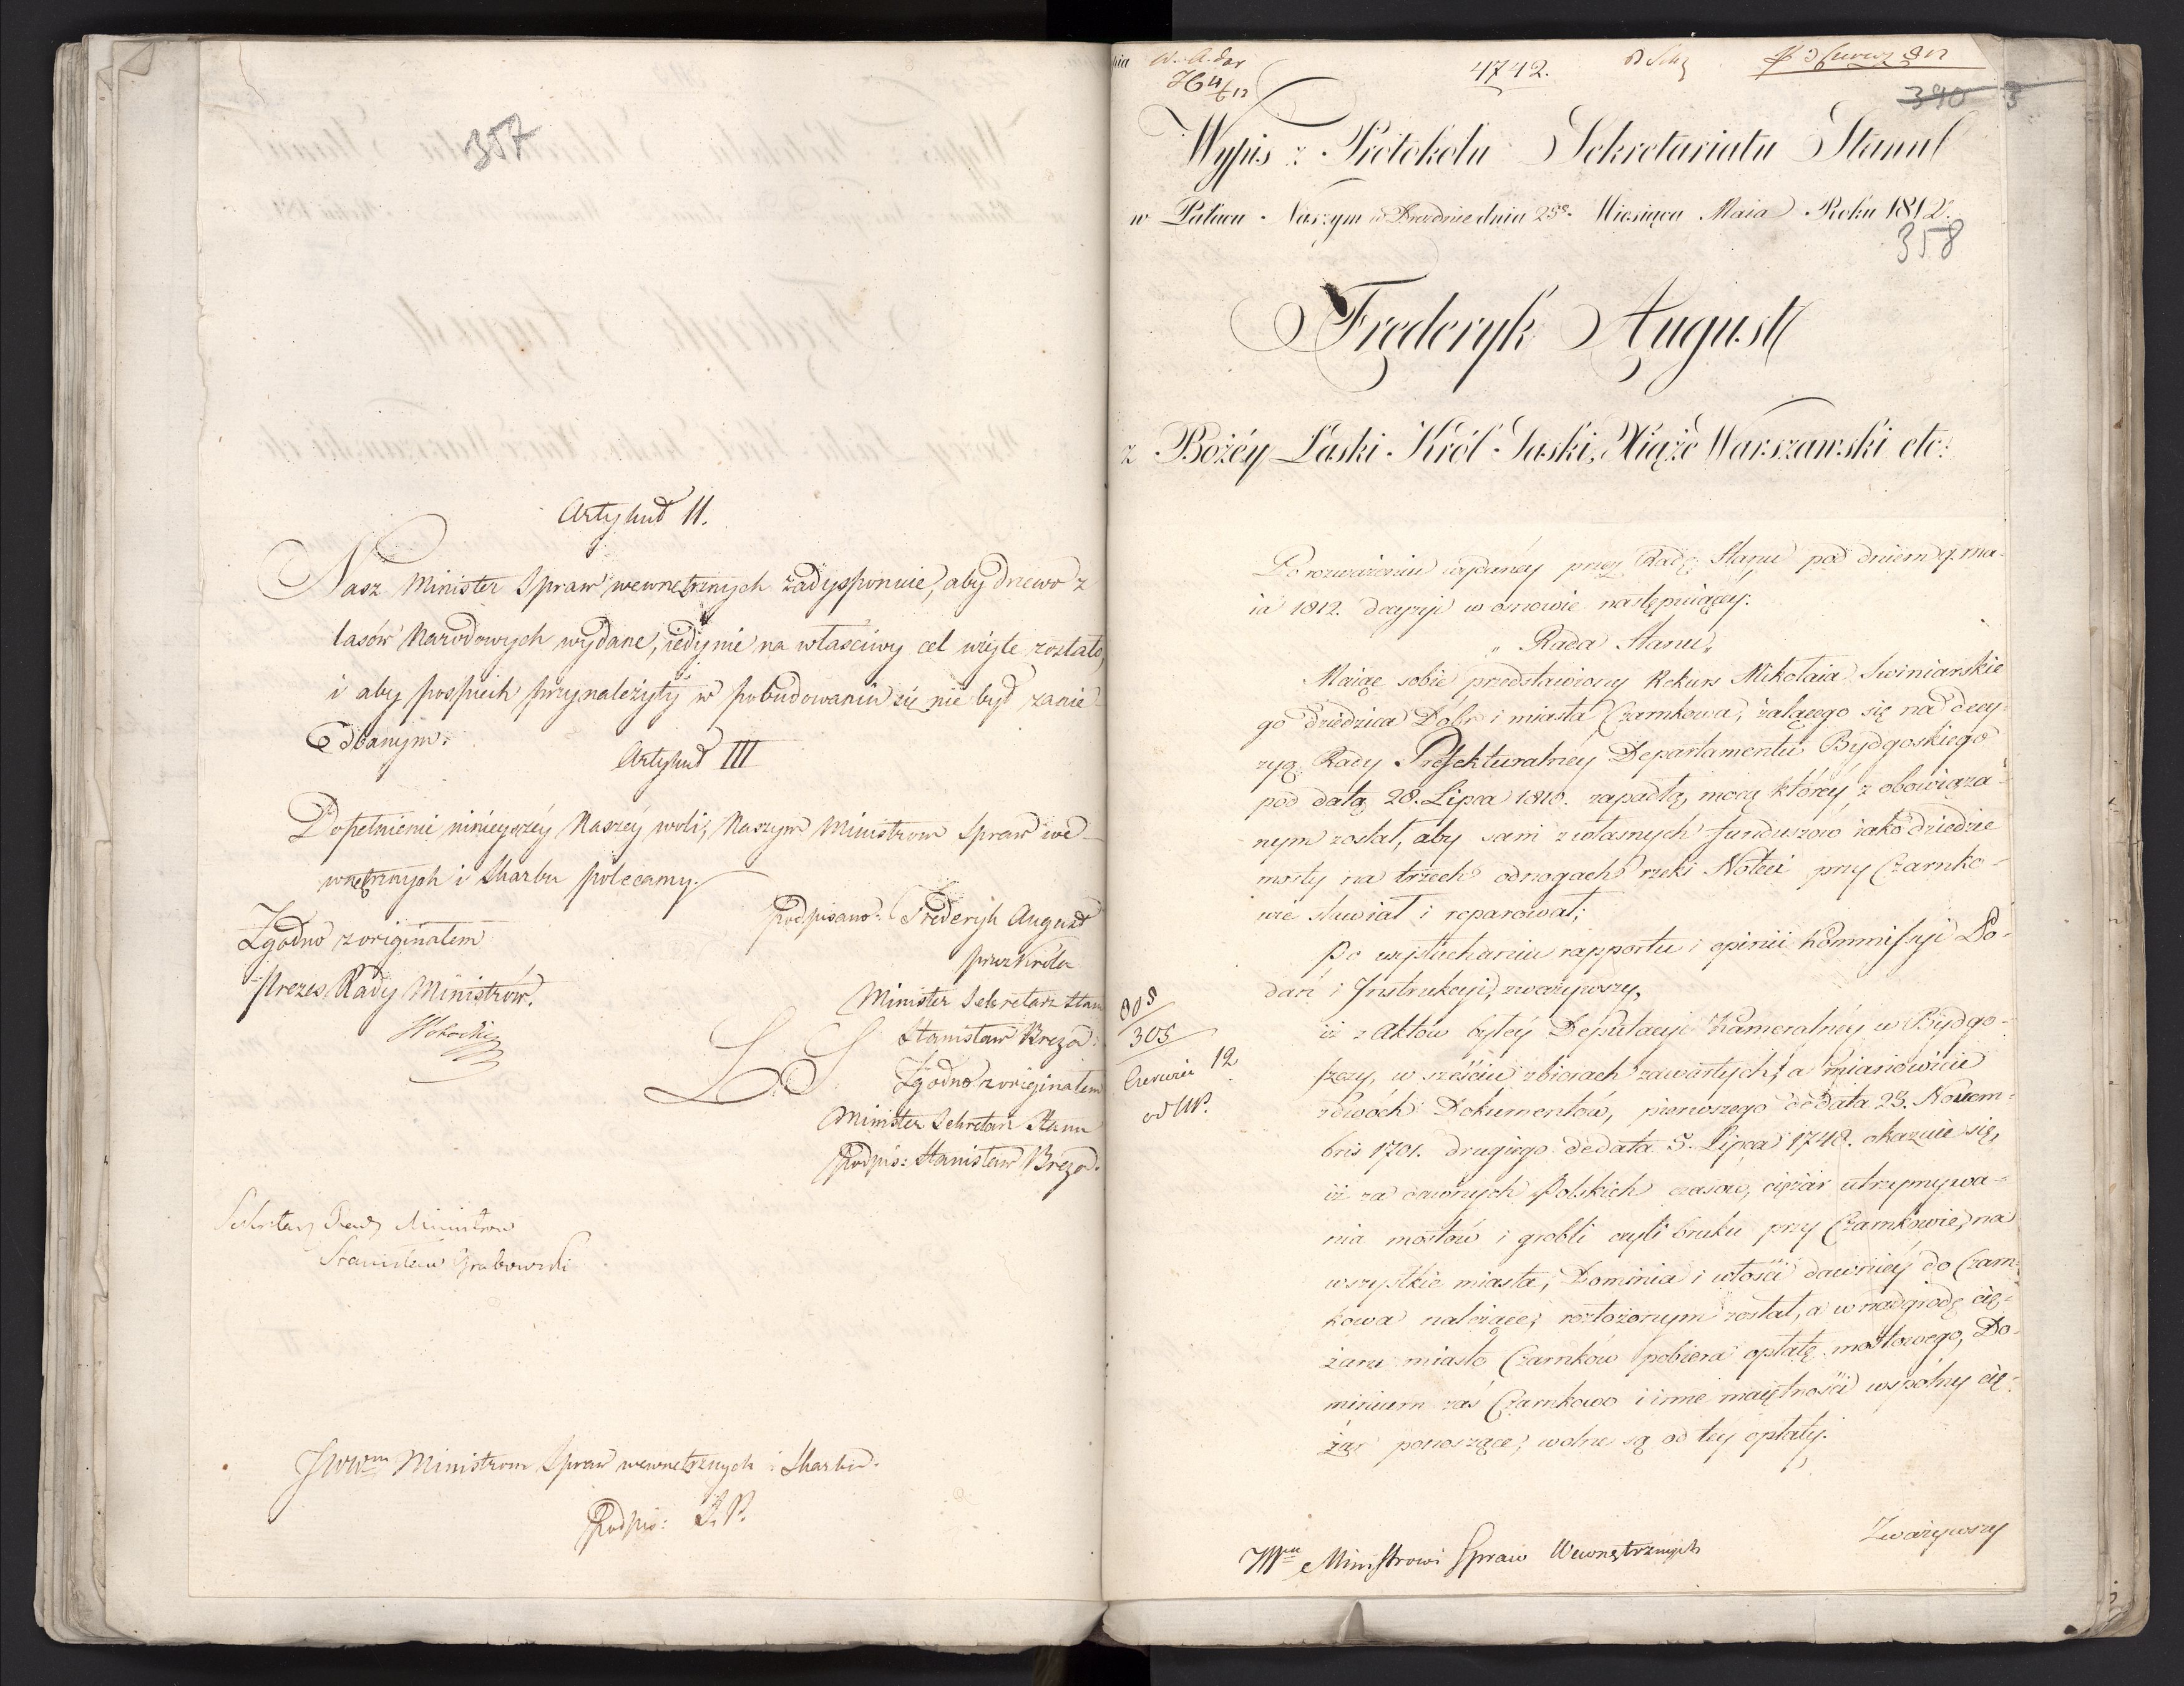 357
Artykuł II.
Nasz Minister Spraw wewnętrznych zadysponuie, aby drzewo z
lasów Narodowych wydane, iedynie na właściwy cel użyte zostało,
i aby pospiech przynależyty w pobudowaniu się nie był zanie-
dbanym.
Artykuł III
Dopełnienie ninieyszéy Naszéy woli, Naszym Ministrom Spraw we-
wnętrznych i Skarbu polecamy.
podpisano: Frederyk August
przez Króla
Minister Sekretarz Stanu
Stanisław Breza.
L. S.
Zgodno z originałem
Minister Sekretarz Stanu
Podpis: Stanisław Breza.
Zgodno z originałem
Prezes Rady Ministrów.
Sekretarz Rady Ministrów
Stanisław Grabowski
JWW^m Ministrom Spraw wewnętrznych i Skarbu.
Podpis: S. P.
4742.
390
Wypis z Protokołu Sekretariatu Stanu
w Pałacu Naszym w Dreźnie dnia 25º Miesiąca Maia Roku 1812.
358
Frederyk August
z Bożéy Łaski Król Saski, Xiąże Warszawski etc:
Po rozważeniu wydanéy przez Radę Stanu pod dniem 9. Ma-
ia 1812. decyzyi w osnowie następuiącéy:
"Rada Stanu,
Maiąc sobie przedstawiony Rekurs Mikołaia Swiniarskie
go dziedzica Dóbr i miasta Czarnkowa, żalącego się na decy-
zyą Rady Prefekturalnéy Departamentu Bydgoskiego
pod datą 28. Lipca 1810. zapadłą, mocą któréy zobowiąza-
nym został, aby sam z własnych funduszów iako dziedzic
mosty na trzech odnogach rzeki Noteci przy Czarnko-
wie stawiał i reparował;
Po wysłuchaniu rapportu i opinii Kommissyi Po-
dań i Instrukcyi, zważywszy,
iż z Aktów byłéy Deputacyi Kameralnéy w Bydgo-
szczy, w sześciu zbiorach zawartych, a mianowicie
z dwóch Dokumentów, pierwszego de data 23. Novem-
bris 1701. drugiego de data 5. Lipca 1748. okazuie się,
iż za dawnych Polskich czasów, ciężar utrzymywa-
nia mostów i grobli czyli bruku przy Czarnkowie, na
wszystkie miasta, Dominia i włości dawniéy do Czarn-
kowa należące, rozłożonym został, a w nadgrodę cię-
żaru miasto Czarnków pobiera opłatę mostowego, Do-
minium zaś Czarnkowo i inne maiętności wspólny cię-
żar ponoszące, wolne są od tey opłaty.
Zważywszy
305
Czerwca 12
od MP.
JW^mu Ministrowi Spraw Wewnętrznych